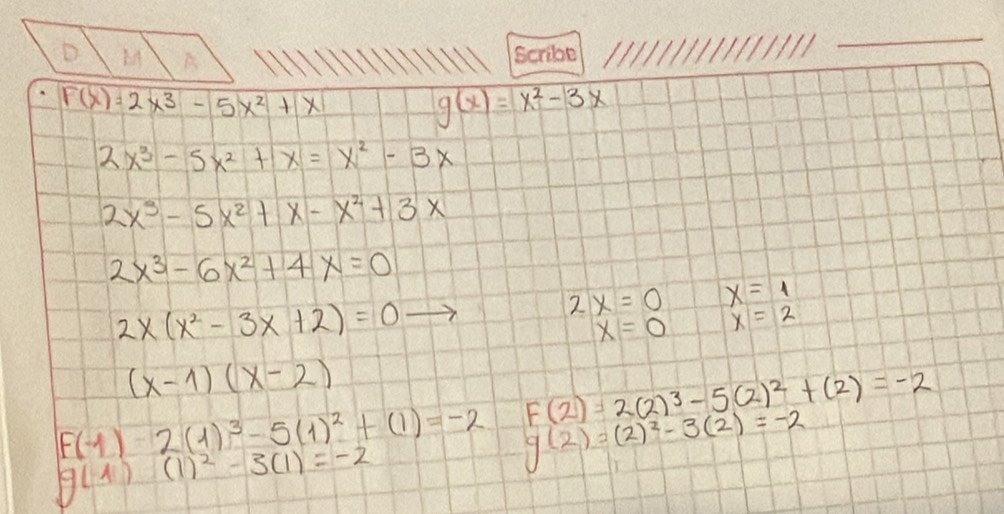 D M A Scribe
• F(x) = 2x³ - 5x² + x g(x) = x² - 3x
2x³ - 5x² + x = x² - 3x
2x³ - 5x² + x - x² + 3x
2x³ - 6x² + 4x = 0
2x(x² - 3x + 2) = 0 → 2x = 0 x = 1
x = 0 x = 2
(x - 1)(x - 2)
F(1) 2(1)³ - 5(1)² + (1) = -2 F(2) = 2(2)³ - 5(2)² + (2) = -2
g(1) (1)² - 3(1) = -2 g(2) = (2)² - 3(2) = -2